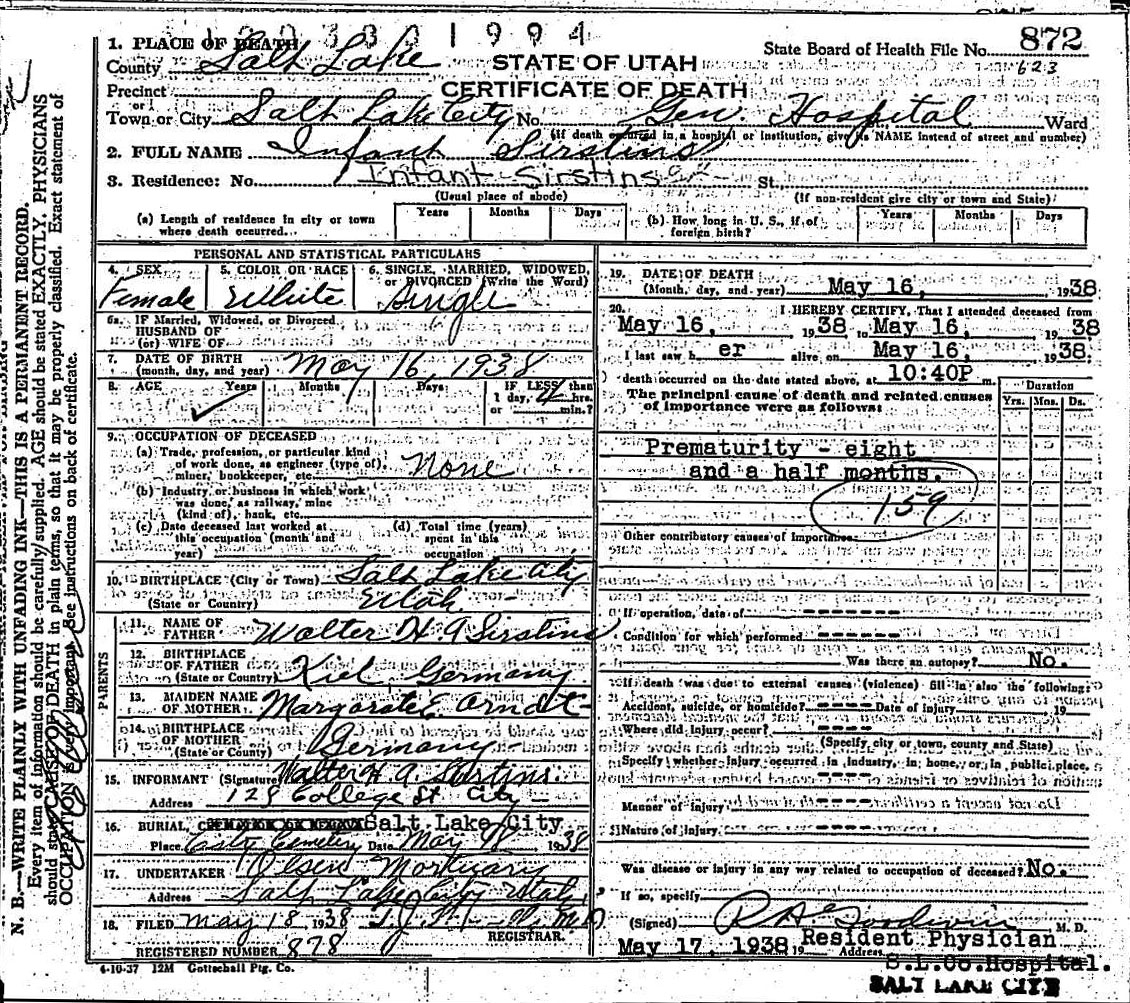 1. PLACE OF DEATH
State Board of Health File No. 872
County Salt Lake
STATE OF UTAH
623
Precinct
CERTIFICATE OF DEATH
or
Town or City Salt Lake City No. Gen Hospital Ward
(If death occurred in a hospital or institution, give its NAME instead of street and number)
2. FULL NAME Infant Sirstins
3. Residence: No. Infant Sirstins St.
(Usual place of abode) (If non-resident give city or town and State)
(a) Length of residence in city or town where death occurred Years Months Days
(b) How long in U. S., if of foreign birth? Years Months Days
PERSONAL AND STATISTICAL PARTICULARS
4. SEX 5. COLOR OR RACE 6. SINGLE, MARRIED, WIDOWED, or DIVORCED (Write the Word)
Female White Single
6a. IF Married, Widowed, or Divorced
HUSBAND OF
(or) WIFE OF
7. DATE OF BIRTH
(month, day, and year) May 16, 1938
8. AGE Years Months Days IF LESS than
1 day, 4 hrs.
or min.?
9. OCCUPATION OF DECEASED
(a) Trade, profession, or particular kind
of work done, as engineer (type of),
miner, bookkeeper, etc. None
(b) Industry or business in which work
was done, as railway, mine
(kind of), bank, etc.
(c) Date deceased last worked at
this occupation (month and
year)
(d) Total time (years)
spent in this
occupation
10. BIRTHPLACE (City or Town) Salt Lake City
(State or Country) Utah
PARENTS
11. NAME OF
FATHER Walter H A Sirstins
12. BIRTHPLACE
OF FATHER
(State or Country) Kiel Germany
13. MAIDEN NAME
OF MOTHER Margarete E. Arndt
14. BIRTHPLACE
OF MOTHER
(State or County) Germany
15. INFORMANT (Signature) Walter H. A. Sirstins
Address 128 College St City
16. BURIAL, Salt Lake City
Place Cemetery Date May 1938
17. UNDERTAKER Olsen Mortuary
Address Salt Lake City Utah
18. FILED May 18 1938
REGISTRAR.
REGISTERED NUMBER 878
4-10-37 12M Gottschall Ptg. Co.
19. DATE OF DEATH
(Month, day, and year) May 16, 1938
20. I HEREBY CERTIFY, That I attended deceased from
May 16, 1938 to May 16, 1938
I last saw her alive on May 16, 1938.
death occurred on the date stated above, at 10:40P m.
The principal cause of death and related causes
of importance were as follows:
Duration
Yrs. Mos. Ds.
Prematurity - eight
and a half months.
159
Other contributory causes of importance
If operation, date of -----
Condition for which performed -----
Was there an autopsy? No.
If death was due to external causes (violence) fill in also the following:
Accident, suicide, or homicide? ---- Date of injury 19
Where did injury occur? -----
(Specify city or town, county and State)
Specify whether injury occurred in industry, in home, or in public place.
-----
Manner of injury -----
Nature of injury -----
Was disease or injury in any way related to occupation of deceased? No.
If so, specify
(Signed) R A Goodwin M. D.
May 17, 1938 19 Address Resident Physician
S.L.Co.Hospital.
SALT LAKE CITY
N. B.—WRITE PLAINLY WITH UNFADING INK—THIS IS A PERMANENT RECORD.
Every item of information should be carefully supplied. AGE should be stated EXACTLY. PHYSICIANS
should state CAUSE OF DEATH in plain terms, so that it may be properly classified. Exact statement of
OCCUPATION is very important. See instructions on back of certificate.